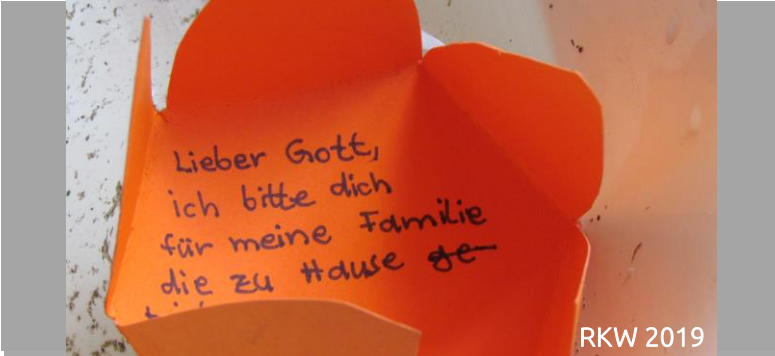 Lieber Gott,
ich bitte dich
für meine Familie
die zu Hause ge
RKW 2019